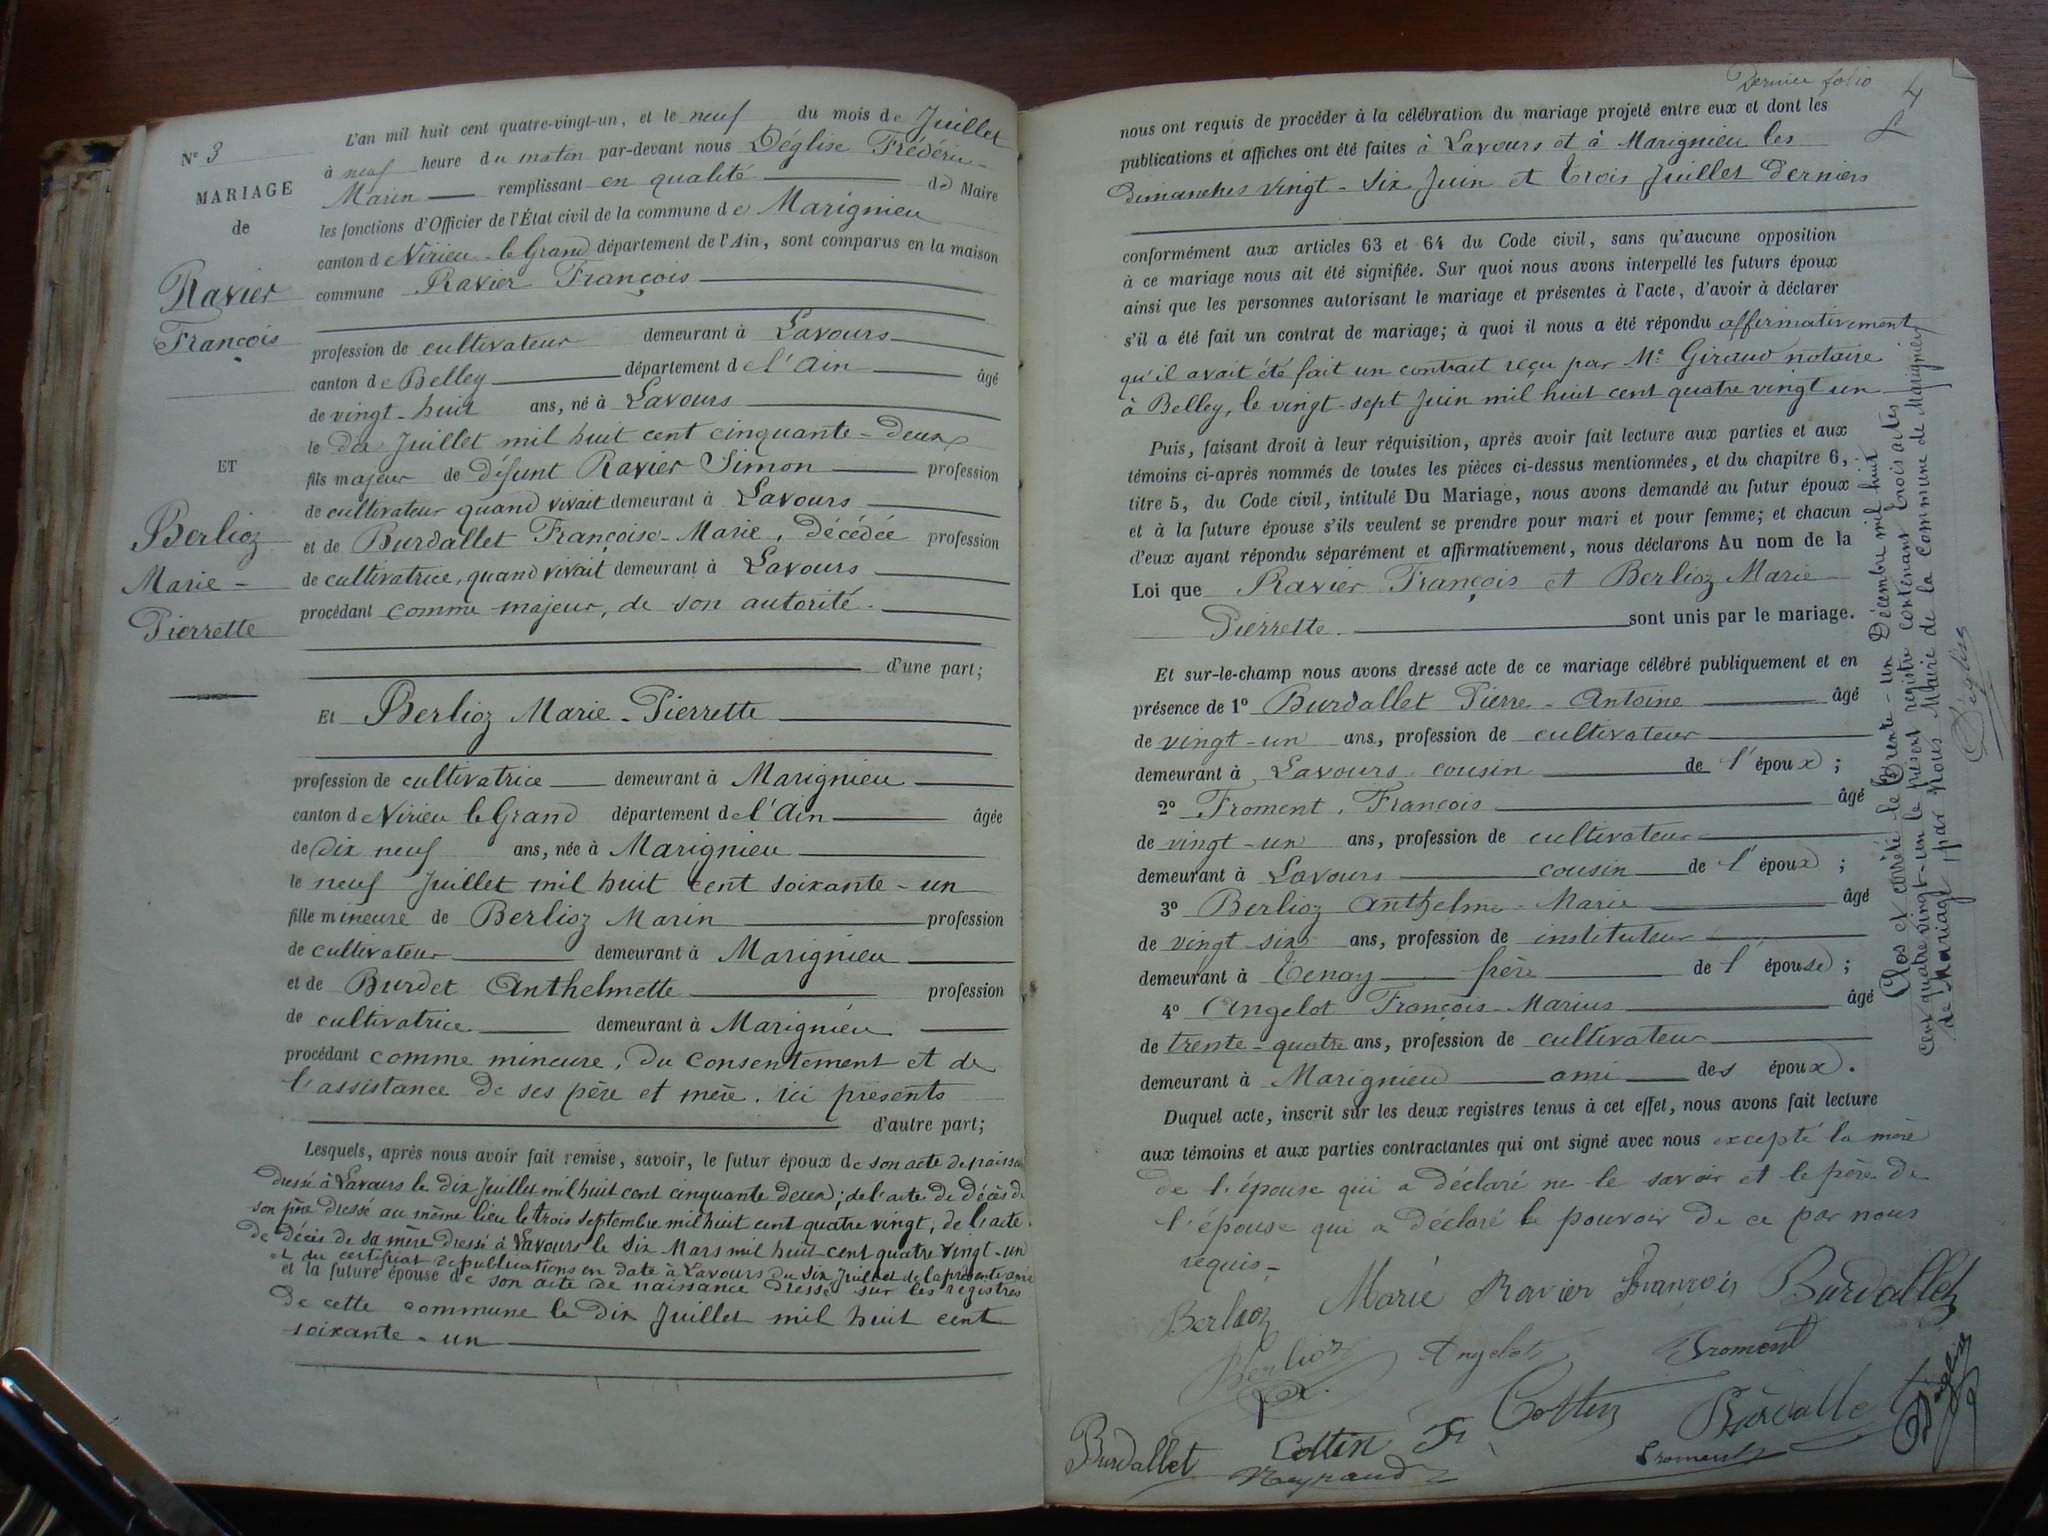 N° 3
MARIAGE
de
Ravier
François
ET
Berlioz
Marie -
Pierrette
L'an mil huit cent quatre-vingt-un, et le neuf du mois de Juillet
à neuf heure du matin par-devant nous Déglise Frédéric
Marin remplissant en qualité de Maire
les fonctions d'Officier de l'État civil de la commune de Marignieu
canton de Virieu-le Grand département de l'Ain, sont comparus en la maison
commune Ravier François
profession de cultivateur demeurant à Lavours
canton de Belley département de l'Ain âgé
de vingt-huit ans, né à Lavours
le dix Juillet mil huit cent cinquante-deux
fils majeur de défunt Ravier Simon profession
de cultivateur quand vivait demeurant à Lavours
et de Burdallet Françoise-Marie, décédée profession
de cultivatrice, quand vivait demeurant à Lavours
procédant comme majeur, de son autorité.
d'une part;
Et Berlioz Marie-Pierrette
profession de cultivatrice demeurant à Marignieu
canton de Virieu le Grand département de l'Ain âgée
de dix neuf ans, née à Marignieu
le neuf Juillet mil huit cent soixante-un
fille mineure de Berlioz Marin profession
de cultivateur demeurant à Marignieu
et de Burdet Anthelmette profession
de cultivatrice demeurant à Marignieu
procédant comme mineure, du consentement et de
l'assistance de ses père et mère, ici présents
d'autre part;
Lesquels, après nous avoir fait remise, savoir, le futur époux de son acte de naissance
dressé à Lavours le dix Juillet mil huit cent cinquante deux; de l'acte de décès de
son père dressé au même lieu le trois septembre mil huit cent quatre vingt, de l'acte
de décès de sa mère dressé à Lavours le six Mars mil huit cent quatre vingt-un
et du certificat de publications en date à Lavours du six Juillet de la présente année
et la future épouse de son acte de naissance dressé sur les registres
de cette commune le dix Juillet mil huit cent
soixante-un
Dernier folio
4
nous ont requis de procéder à la célébration du mariage projeté entre eux et dont les
publications et affiches ont été faites à Lavours et à Marignieu les
dimanches vingt-six Juin et trois Juillet derniers
conformément aux articles 63 et 64 du Code civil, sans qu'aucune opposition
à ce mariage nous ait été signifiée. Sur quoi nous avons interpellé les futurs époux
ainsi que les personnes autorisant le mariage et présentes à l'acte, d'avoir à déclarer
s'il a été fait un contrat de mariage; à quoi il nous a été répondu affirmativement
qu'il avait été fait un contrat reçu par Me Giraud notaire
à Belley, le vingt-sept Juin mil huit cent quatre vingt un
Puis, faisant droit à leur réquisition, après avoir fait lecture aux parties et aux
témoins ci-après nommés de toutes les pièces ci-dessus mentionnées, et du chapitre 6,
titre 5, du Code civil, intitulé Du Mariage, nous avons demandé au futur époux
et à la future épouse s'ils veulent se prendre pour mari et pour femme; et chacun
d'eux ayant répondu séparément et affirmativement, nous déclarons Au nom de la
Loi que Ravier François et Berlioz Marie
Pierrette sont unis par le mariage.
Et sur-le-champ nous avons dressé acte de ce mariage célébré publiquement et en
présence de 1° Burdallet Pierre-Antoine âgé
de vingt-un ans, profession de cultivateur
demeurant à Lavours cousin de l'époux;
2° Froment, François âgé
de vingt-un ans, profession de cultivateur
demeurant à Lavours cousin de l'époux;
3° Berlioz Anthelme-Marie âgé
de vingt six ans, profession de instituteur
demeurant à Tenay frère de l'épouse;
4° Angelot François-Marius âgé
de trente-quatre ans, profession de cultivateur
demeurant à Marignieu ami des époux.
Duquel acte, inscrit sur les deux registres tenus à cet effet, nous avons fait lecture
aux témoins et aux parties contractantes qui ont signé avec nous excepté la mère
de l'épouse qui a déclaré ne le savoir et le père de
l'épouse qui a déclaré le pouvoir de ce par nous
requis -
Berlioz Marie Ravier François Burdallet
Berlioz Angelot Froment
Cottin Burdallet Déglise
Burdallet Cottin Fr
Reynaud Froment
Clos et arrêté le Trente-un Décembre mil huit
cent quatre vingt-un le présent registre contenant trois actes
de Mariage, par Nous Maire de la Commune de Marignieu
Déglise